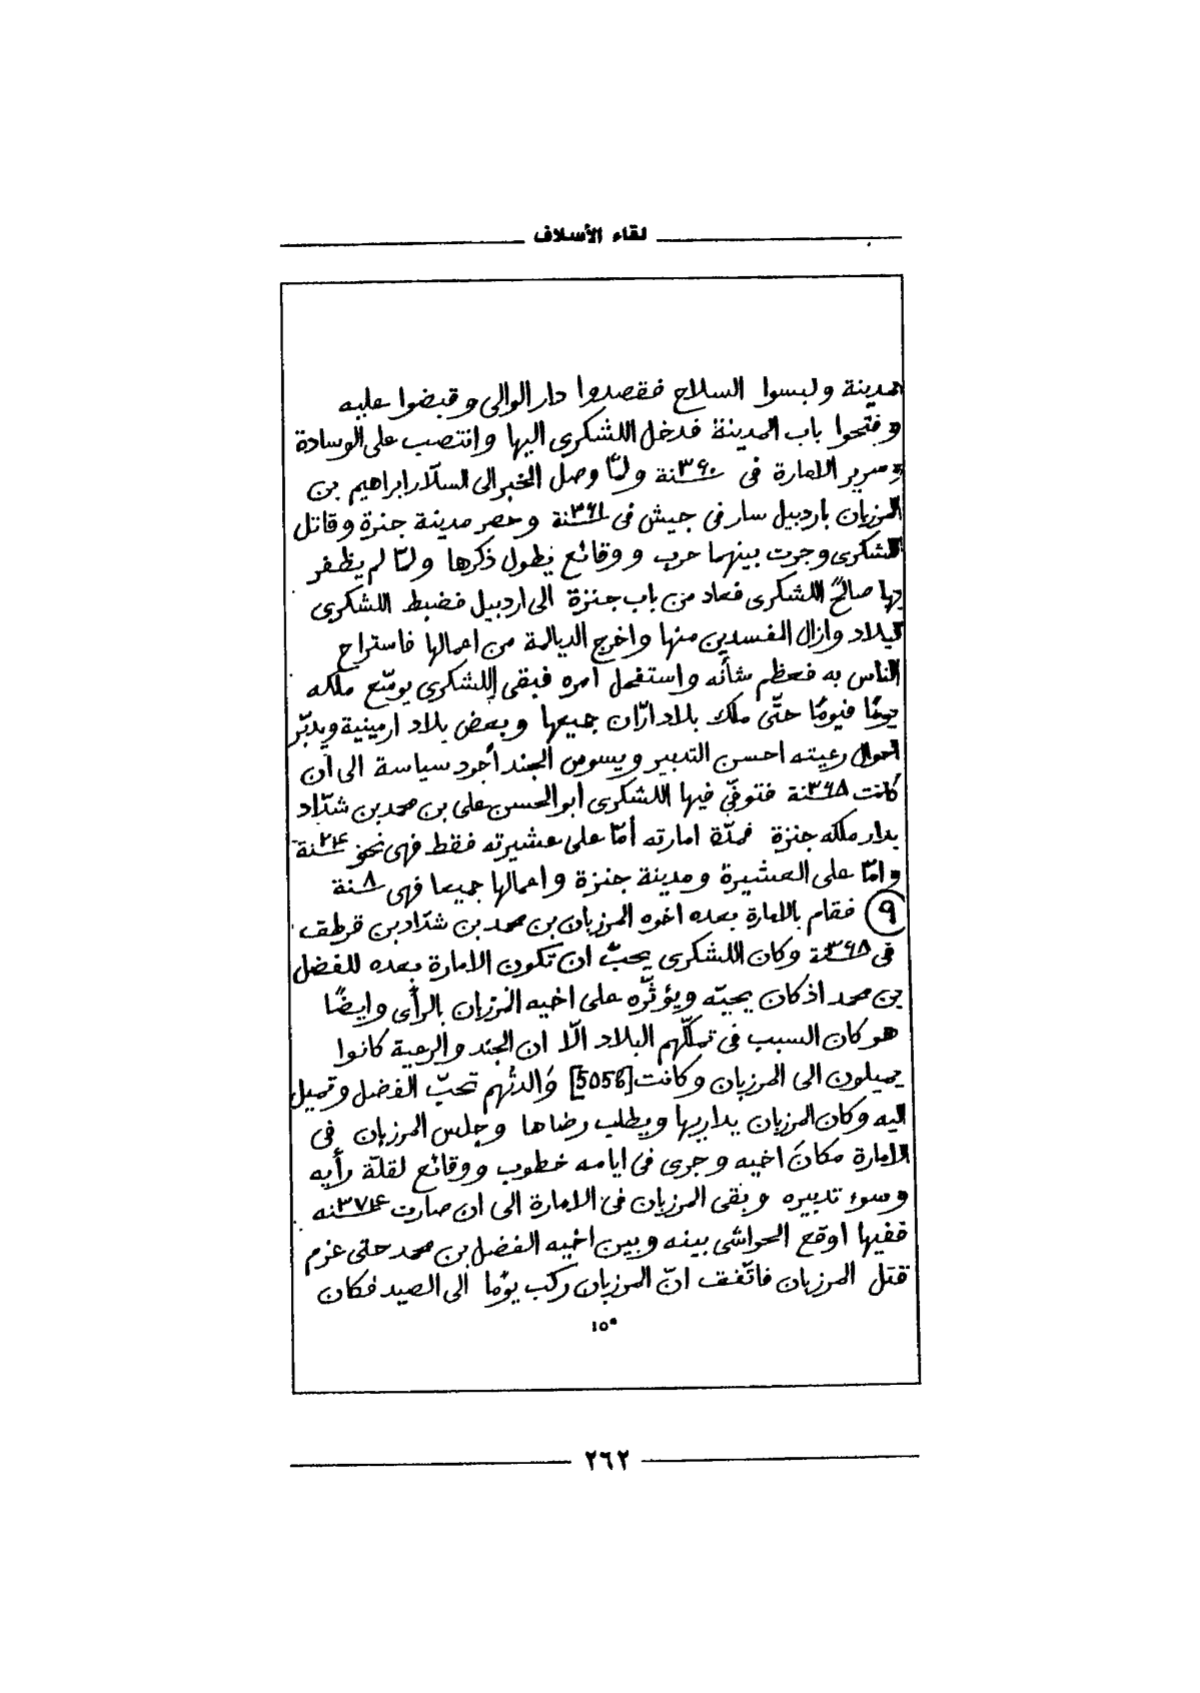 لقاء الأسلاف
المدينة ولبسوا السلاح فقصدوا دار الوالى وقبضوا عليه
وفتحوا باب المدينة فدخل اللشكرى اليها وانتصب على الوسادة
وسرير الامارة فى سنة ٣٦٠ ولمّا وصل الخبر الى السلّار ابراهيم بن
المرزبان باردبيل سار فى جيش فى سنة ٣٦١ وحصر مدينة جنزة وقاتل
اللشكرى وجرت بينهما حرب ووقائع يطول ذكرها ولمّا لم يظفر
بها صالح اللشكرى فعاد من باب جنزة الى اردبيل فضبط اللشكرى
البلاد وازال المفسدين منها واخرج الديالمة من اعمالها فاستراح
الناس به فعظم شأنه واستفحل امره فبقى اللشكرى يوسّع ملكه
يومًا فيومًا حتّى ملك بلاد ارّان جميعها وبعض بلاد ارمينية ويدبّر
احوال رعيته احسن التدبير ويسوس الجند أجود سياسة الى ان
كانت سنة ٣٦٨ فتوفّى فيها اللشكرى ابو الحسن على بن محمد بن شدّاد
بدار ملكه جنزة فمدّة امارته أمّا على عشيرته فقط فهى نحو سنة ٢٤
وامّا على العشيرة ومدينة جنزة واعمالها جميعا فهى ٨ سنة
٩ فقام بالامارة بعده اخوه المرزبان بن محمد بن شدّاد بن قرطق
فى سنة ٣٦٨ وكان اللشكرى يحبّ ان تكون الامارة بعده للفضل
بن محمد اذ كان يحبّه ويؤثّره على اخيه المرزبان بالرأى وايضًا
هو كان السبب فى تملّكهم البلاد الّا ان الجند والرعية كانوا
يميلون الى المرزبان وكانت [505b] والدتُهم تحبّ الفضل وتميل
اليه وكان المرزبان يداريها ويطلب رضاها وجلس المرزبان فى
الامارة مكانَ اخيه وجرى فى ايامه خطوب ووقائع لقلّة رأيه
وسوء تدبيره وبقى المرزبان فى الامارة الى ان صارت سنه ٣٧٤
ففيها اوقع الحواشى بينه وبين اخيه الفضل بن محمد حتى عزم
قتل المرزبان فاتّفق انّ المرزبان ركب يومًا الى الصيد فكان
٢٦٢